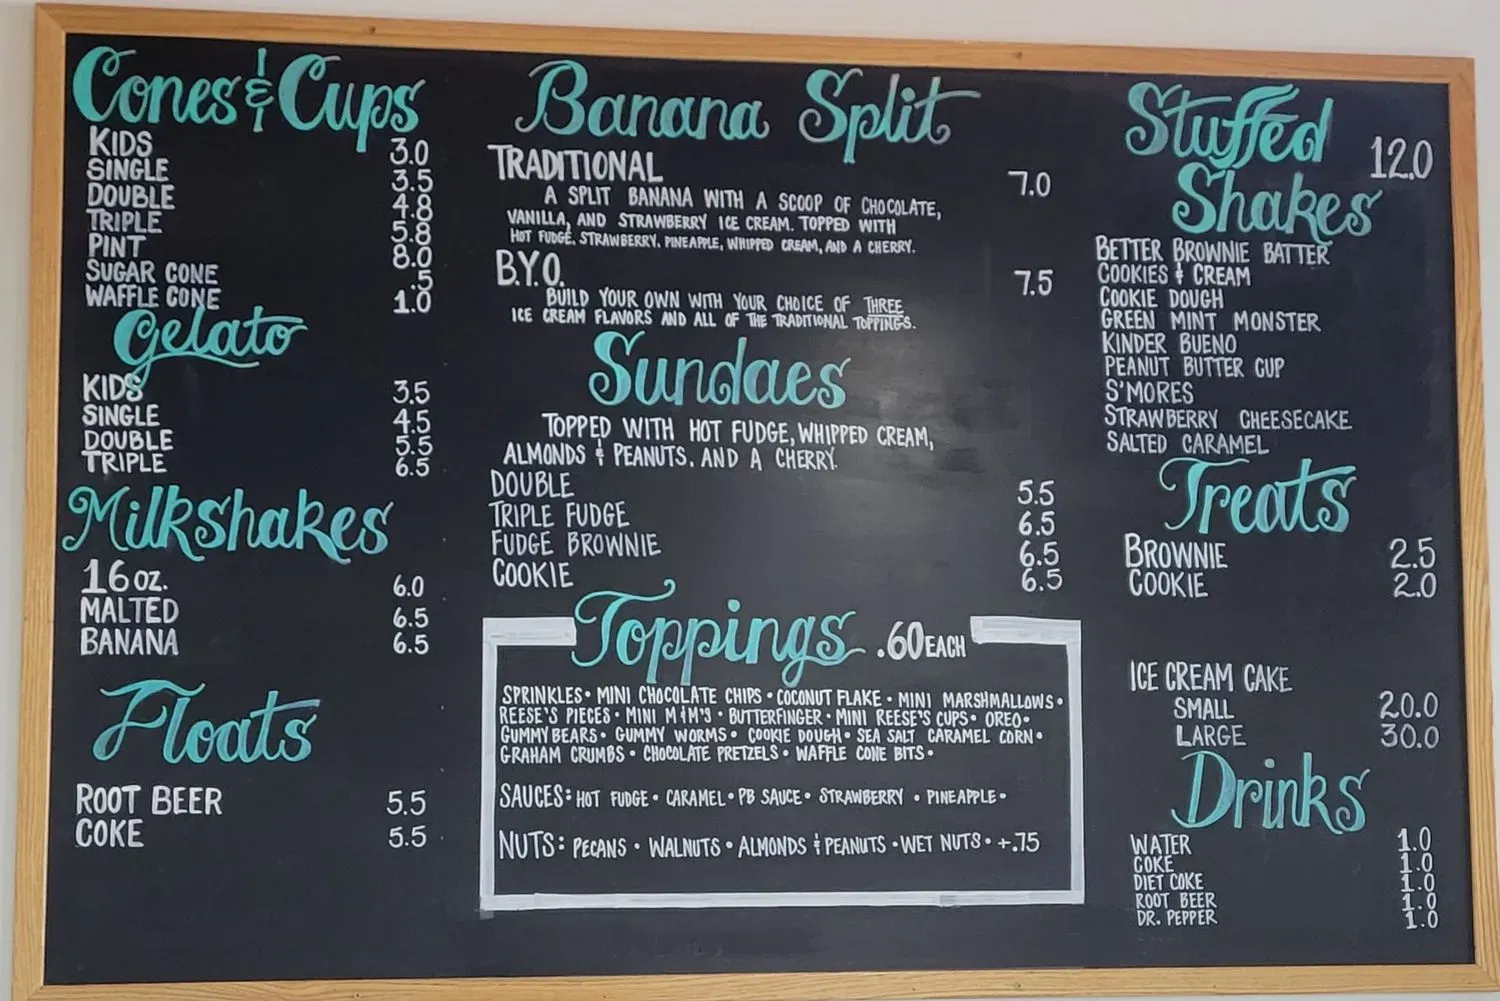 Cones & Cups
KIDS 3.0
SINGLE 3.5
DOUBLE 4.8
TRIPLE 5.8
PINT 8.0
SUGAR CONE .5
WAFFLE CONE 1.0
Gelato
KIDS 3.5
SINGLE 4.5
DOUBLE 5.5
TRIPLE 6.5
Milkshakes
16 OZ. 6.0
MALTED 6.5
BANANA 6.5
Floats
ROOT BEER 5.5
COKE 5.5
Banana Split
TRADITIONAL 7.0
A SPLIT BANANA WITH A SCOOP OF CHOCOLATE,
VANILLA, AND STRAWBERRY ICE CREAM. TOPPED WITH
HOT FUDGE, STRAWBERRY, PINEAPPLE, WHIPPED CREAM, AND A CHERRY.
B.Y.O. 7.5
BUILD YOUR OWN WITH YOUR CHOICE OF THREE
ICE CREAM FLAVORS AND ALL OF THE TRADITIONAL TOPPINGS.
Sundaes
TOPPED WITH HOT FUDGE, WHIPPED CREAM,
ALMONDS & PEANUTS, AND A CHERRY.
DOUBLE 5.5
TRIPLE FUDGE 6.5
FUDGE BROWNIE 6.5
COOKIE 6.5
Toppings .60 EACH
SPRINKLES • MINI CHOCOLATE CHIPS • COCONUT FLAKE • MINI MARSHMALLOWS •
REESE'S PIECES • MINI M&M'S • BUTTERFINGER • MINI REESE'S CUPS • OREO •
GUMMY BEARS • GUMMY WORMS • COOKIE DOUGH • SEA SALT CARAMEL CORN •
GRAHAM CRUMBS • CHOCOLATE PRETZELS • WAFFLE CONE BITS •
SAUCES: HOT FUDGE • CARAMEL • PB SAUCE • STRAWBERRY • PINEAPPLE •
NUTS: PECANS • WALNUTS • ALMONDS & PEANUTS • WET NUTS • +.75
Stuffed 12.0
Shakes
BETTER BROWNIE BATTER
COOKIES & CREAM
COOKIE DOUGH
GREEN MINT MONSTER
KINDER BUENO
PEANUT BUTTER CUP
S'MORES
STRAWBERRY CHEESECAKE
SALTED CARAMEL
Treats
BROWNIE 2.5
COOKIE 2.0
ICE CREAM CAKE
SMALL 20.0
LARGE 30.0
Drinks
WATER 1.0
COKE 1.0
DIET COKE 1.0
ROOT BEER 1.0
DR. PEPPER 1.0